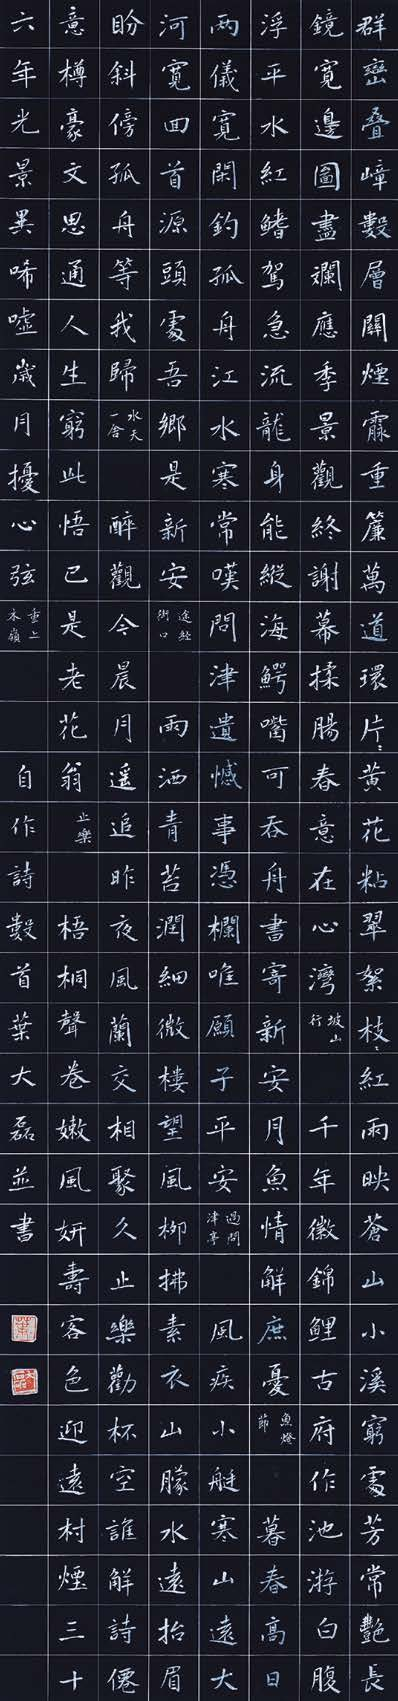 群巒叠嶂數層關煙霏重簾萬道環片〻黃花粘翠絮枝〻紅雨映蒼山小溪窮處芳常艷長
鏡寬邊圖盡斕應季景觀終謝幕揉腸春意在心灣 坡山行 千年徽錦鯉古府作池游白腹
浮平水紅鰭駕急流龍身能縱海鱷嘴可吞舟書寄新安月魚情解庶憂 魚燈節 暮春高日
兩儀寬閑釣孤舟江水寒常嘆問津遺憾事憑欄唯願子平安 過問津亭 風疾小艇寒山遠大
河寬回首源頭處吾鄉是新安 途經街口 雨洒青苔潤細微樓望風柳拂素衣山朦水遠抬眉
盼斜傍孤舟等我歸 水天一舍 醉觀今晨月遥追昨夜風蘭交相聚久止樂勸杯空誰解詩僊
意樽豪文思通人生窮此悟已是老花翁 止樂 梧桐聲卷嫩風妍壽客色迎遠村煙三十
六年光景異唏噓歲月擾心弦 重上木嶺 自作詩數首葉大磊並書